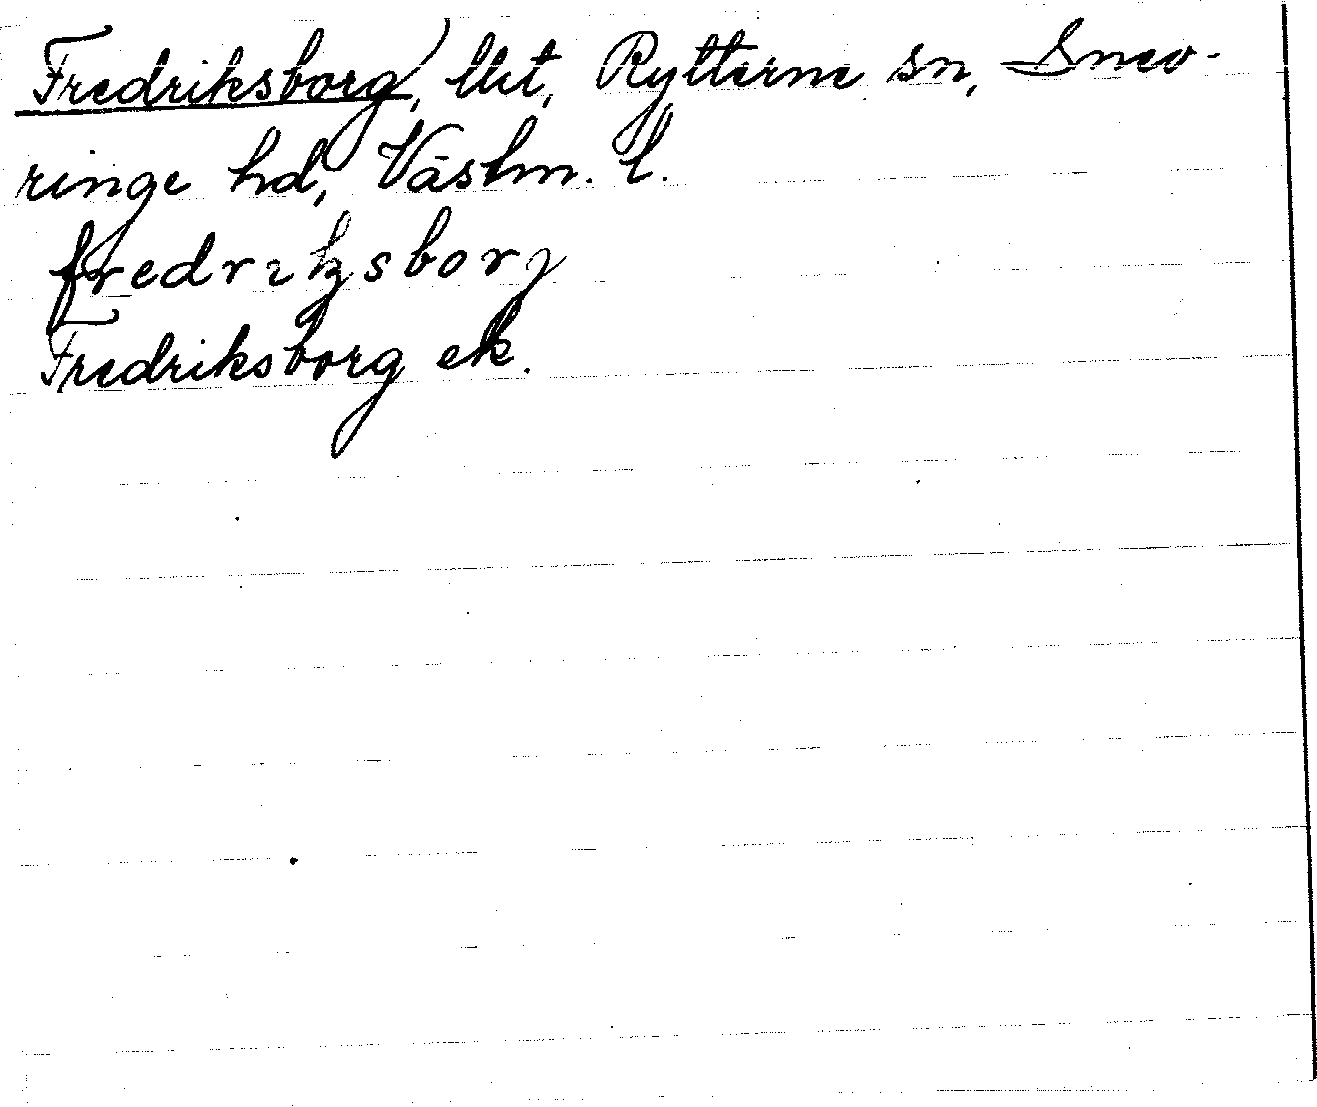 Fredriksborg), lht, Rytterne sn, Snev-
ringe hd, Västm. l.
fredriksborj
Fredriksborg ek.